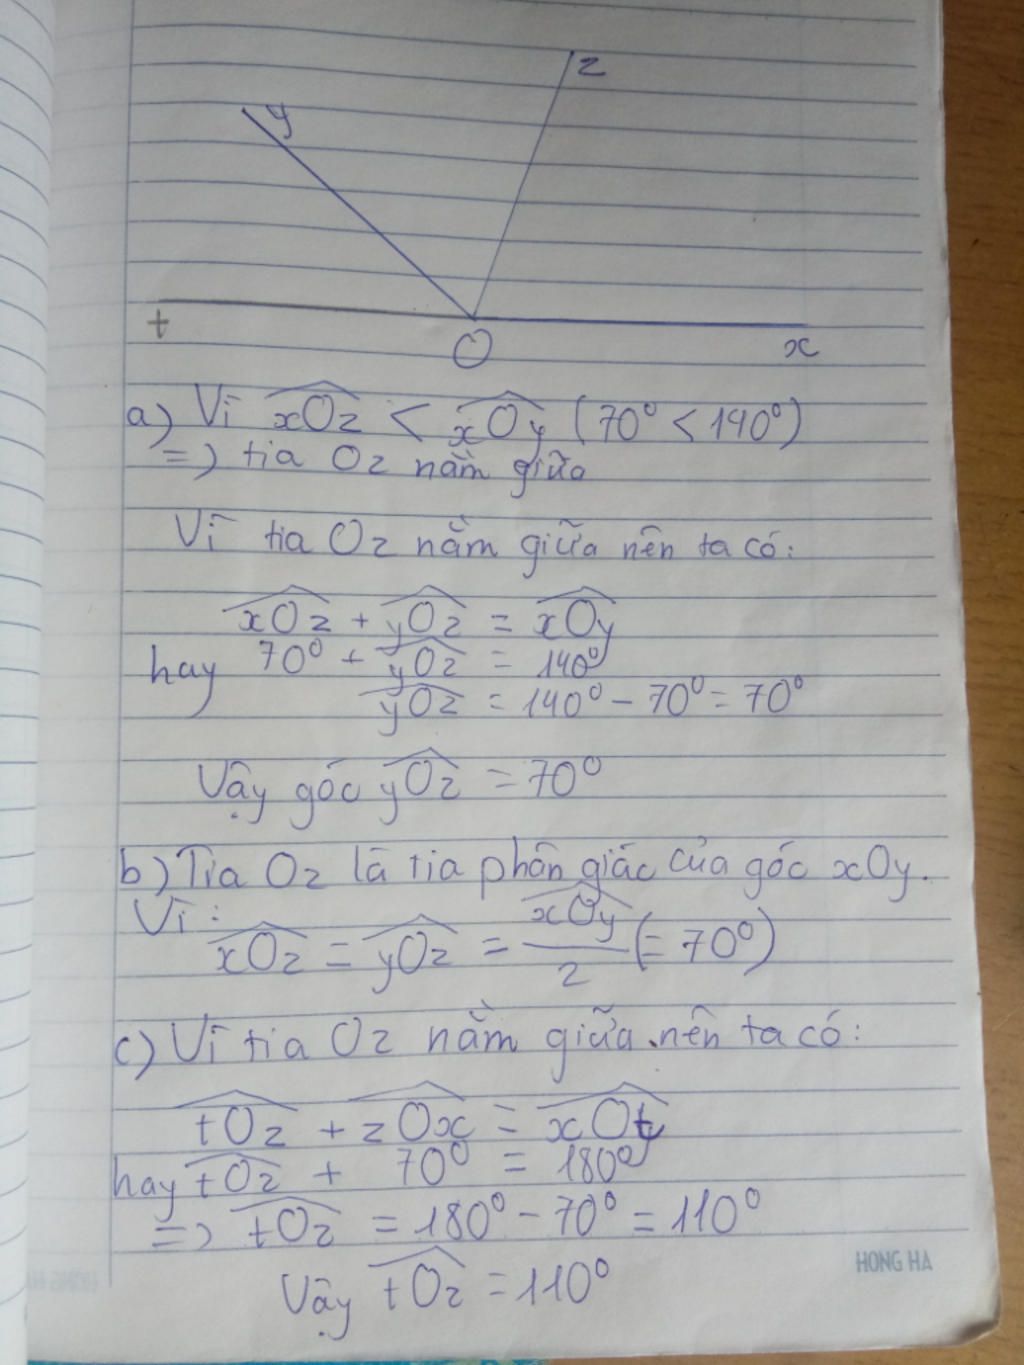 z
y
t
O
x
a) Vì xOz < xOy (70° < 140°)
=> tia Oz nằm giữa
Vì tia Oz nằm giữa nên ta có:
xOz + yOz = xOy
hay 70° + yOz = 140°
yOz = 140° - 70° = 70°
Vậy góc yOz = 70°
b) Tia Oz là tia phân giác của góc xOy.
Vì:
xOz = yOz = xOy/2 (= 70°)
c) Vì tia Oz nằm giữa nên ta có:
tOz + zOx = xOt
hay tOz + 70° = 180°
=> tOz = 180° - 70° = 110°
HONG HA
Vậy tOz = 110°